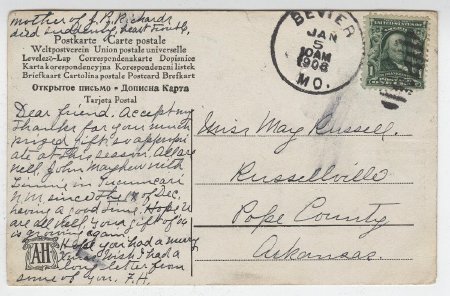 mother of J. R. Richards
died suddenly, heart trouble,
Postkarte — Carte postale
Weltpostverein — Union postale universelle
Levelező-Lap — Correspondenzkarte — Dopisnice
Karta korespondencyjna — Korespondenční lístek
Briefkaart — Cartolina postale — Postcard — Brefkort
Открытое письмо — Дописна Карта
Tarjeta Postal
Dear friend. Accept my
thanks for your much
prized gift, so appropri
ate at this season. All are
well. John Mayhew with
in Tucumcari
N.M. since the 1st of Dec.
having a good time. Hope u
are all well. Your gift of is
is growing again.
Hope you had a merry
Xmas. Wish I had a
long letter from
some of you. F.H.
AH
BEVIER
JAN
5
10AM
1906
MO.
Miss May Russell.
Russellville
Pope County
Arkansas.